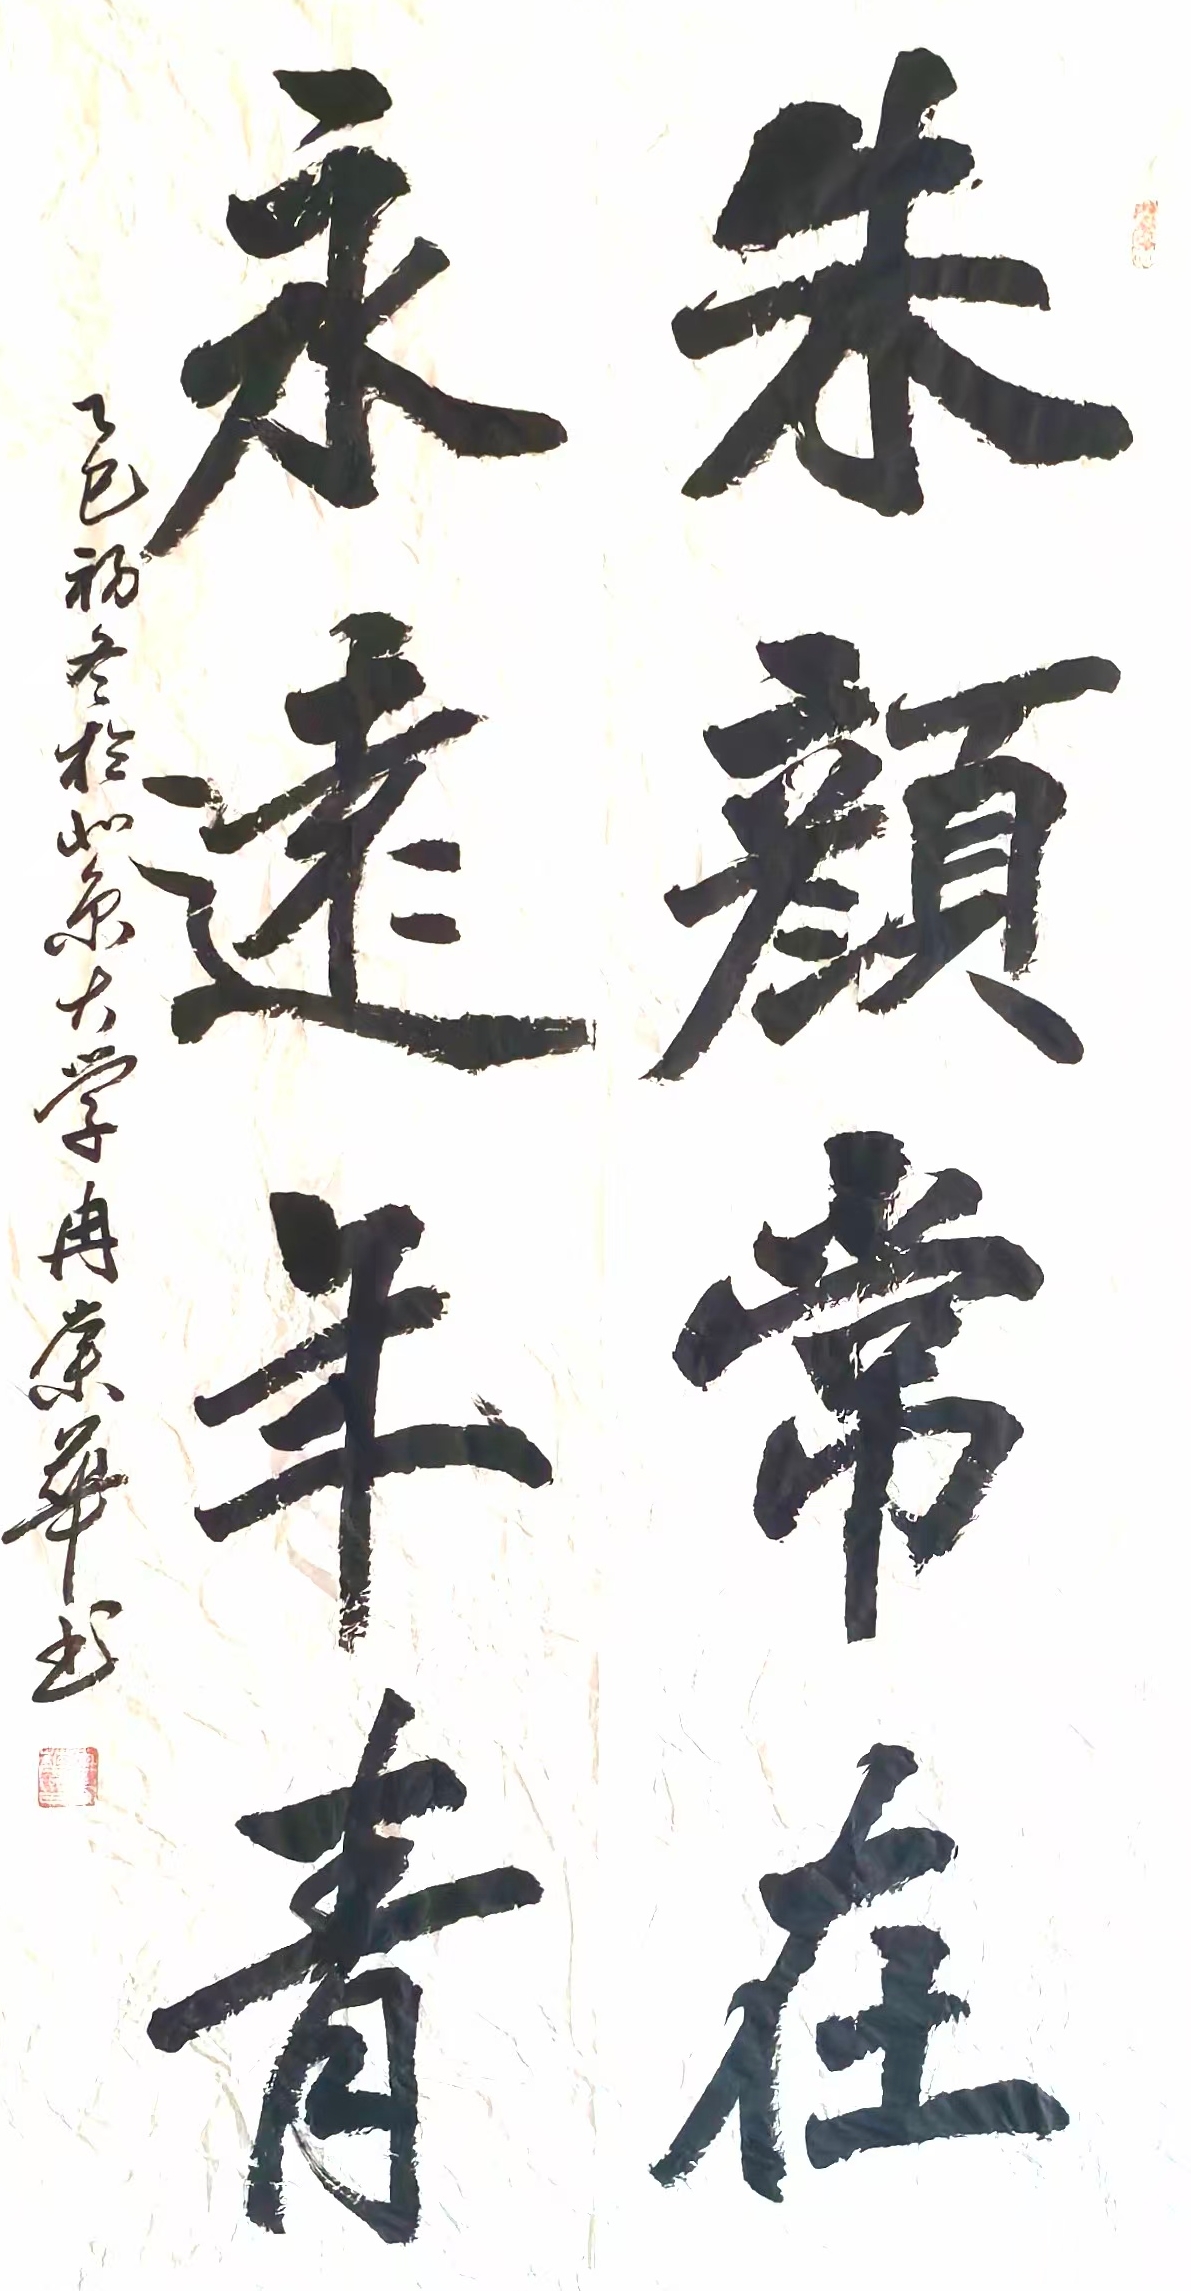 朱顏常在
永遠年青
乙巳初冬於北京大学冉荣華书